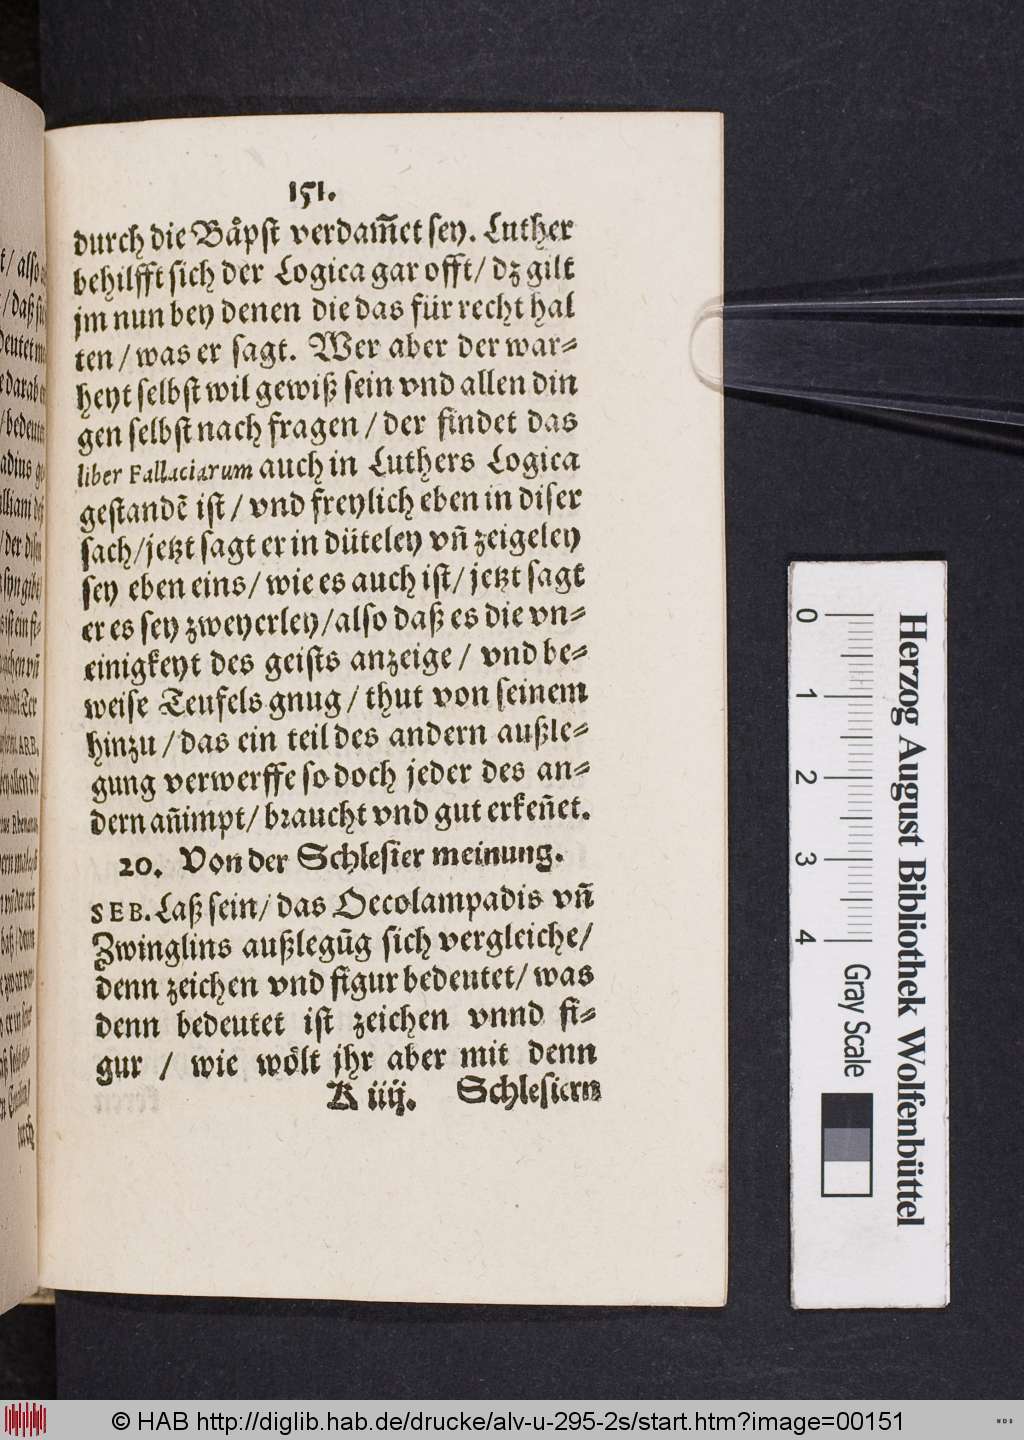 151.
durch die Båpst verdam̃et sey. Luther
behilfft sich der Logica gar offt/ dz gilt
jm nun bey denen die das für recht hal
ten / was er sagt. Wer aber der war⸗
heyt selbst wil gewiß sein vnd allen din
gen selbst nach fragen / der findet das
liber Fallaciarum auch in Luthers Logica
gestandẽ ist / vnd freylich eben in diser
sach/jetzt sagt er in düteley vñ zeigeley
sey eben eins/ wie es auch ist/ jetzt sagt
er es sey zweyerley/also daß es die vn⸗
einigkeyt des geists anzeige / vnd be⸗
weise Teufels gnug / thut von seinem
hinzu / das ein teil des andern außle⸗
gung verwerffe so doch jeder des an⸗
dern añimpt/ braucht vnd gut erkeñet.
20. Von der Schlesier meinung.
SEB. Laß sein/ das Oecolampadis vñ
Zwinglins außlegũg sich vergleiche/
denn zeichen vnd figur bedeutet/ was
denn bedeutet ist zeichen vnnd fi⸗
gur / wie wölt jhr aber mit denn
K iiij. Schlesiern
0 1 2 3 4 Gray Scale
Herzog August Bibliothek Wolfenbüttel
© HAB http://diglib.hab.de/drucke/alv-u-295-2s/start.htm?image=00151